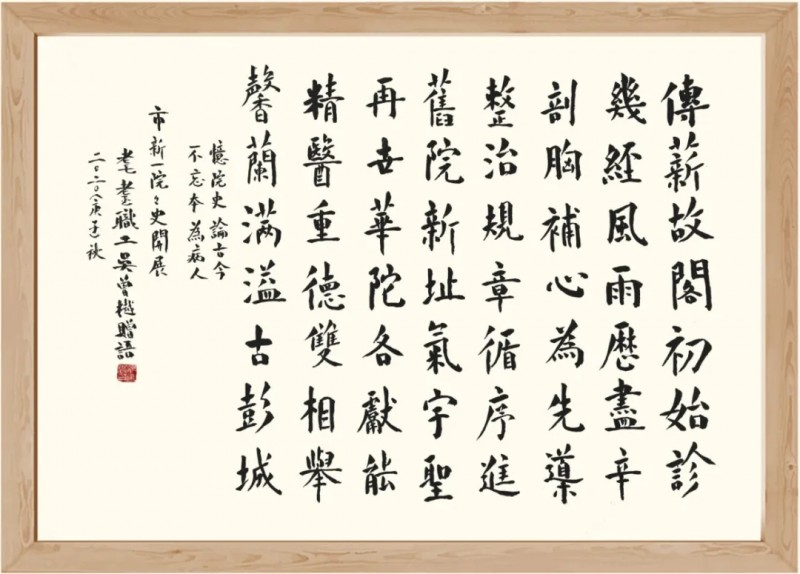 傳薪故閣初始診
幾經風雨歷盡辛
剖胸補心為先導
整治規章循序進
舊院新址氣宇聖
再世華陀各獻能
精醫重德雙相舉
馨蘭满溢古彭城
憶院史論古今
不忘本為病人
市新一院々史開展
耄耋職工吳曾樾贈語
二〇二〇(庚子)秋